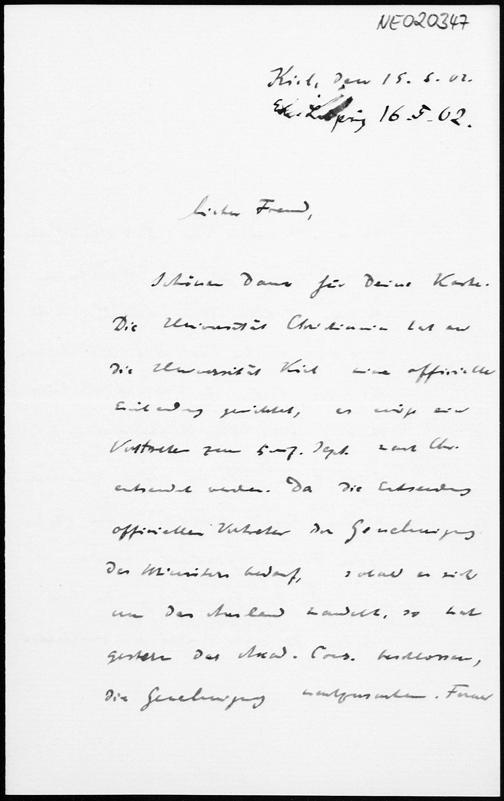 NE020347
Kiel, den 15. 5. 02.
Leipzig 16-5-02.
Lieber Freund,
Schönen Dank für Deine Karte.
Die Universität Christiania hat an
die Universität Kiel eine officielle
Einladung gerichtet, es möge ein
Vertreter zum 5 Sept. nach Chr.
entsandt werden. Da die Entsendung
officieller Vertreter der Genehmigung
des Ministers bedarf, sobald es sich
um das Ausland handelt, so hat
gestern das Akad. Cons. beschlossen,
die Genehmigung nachzusuchen. Ferner